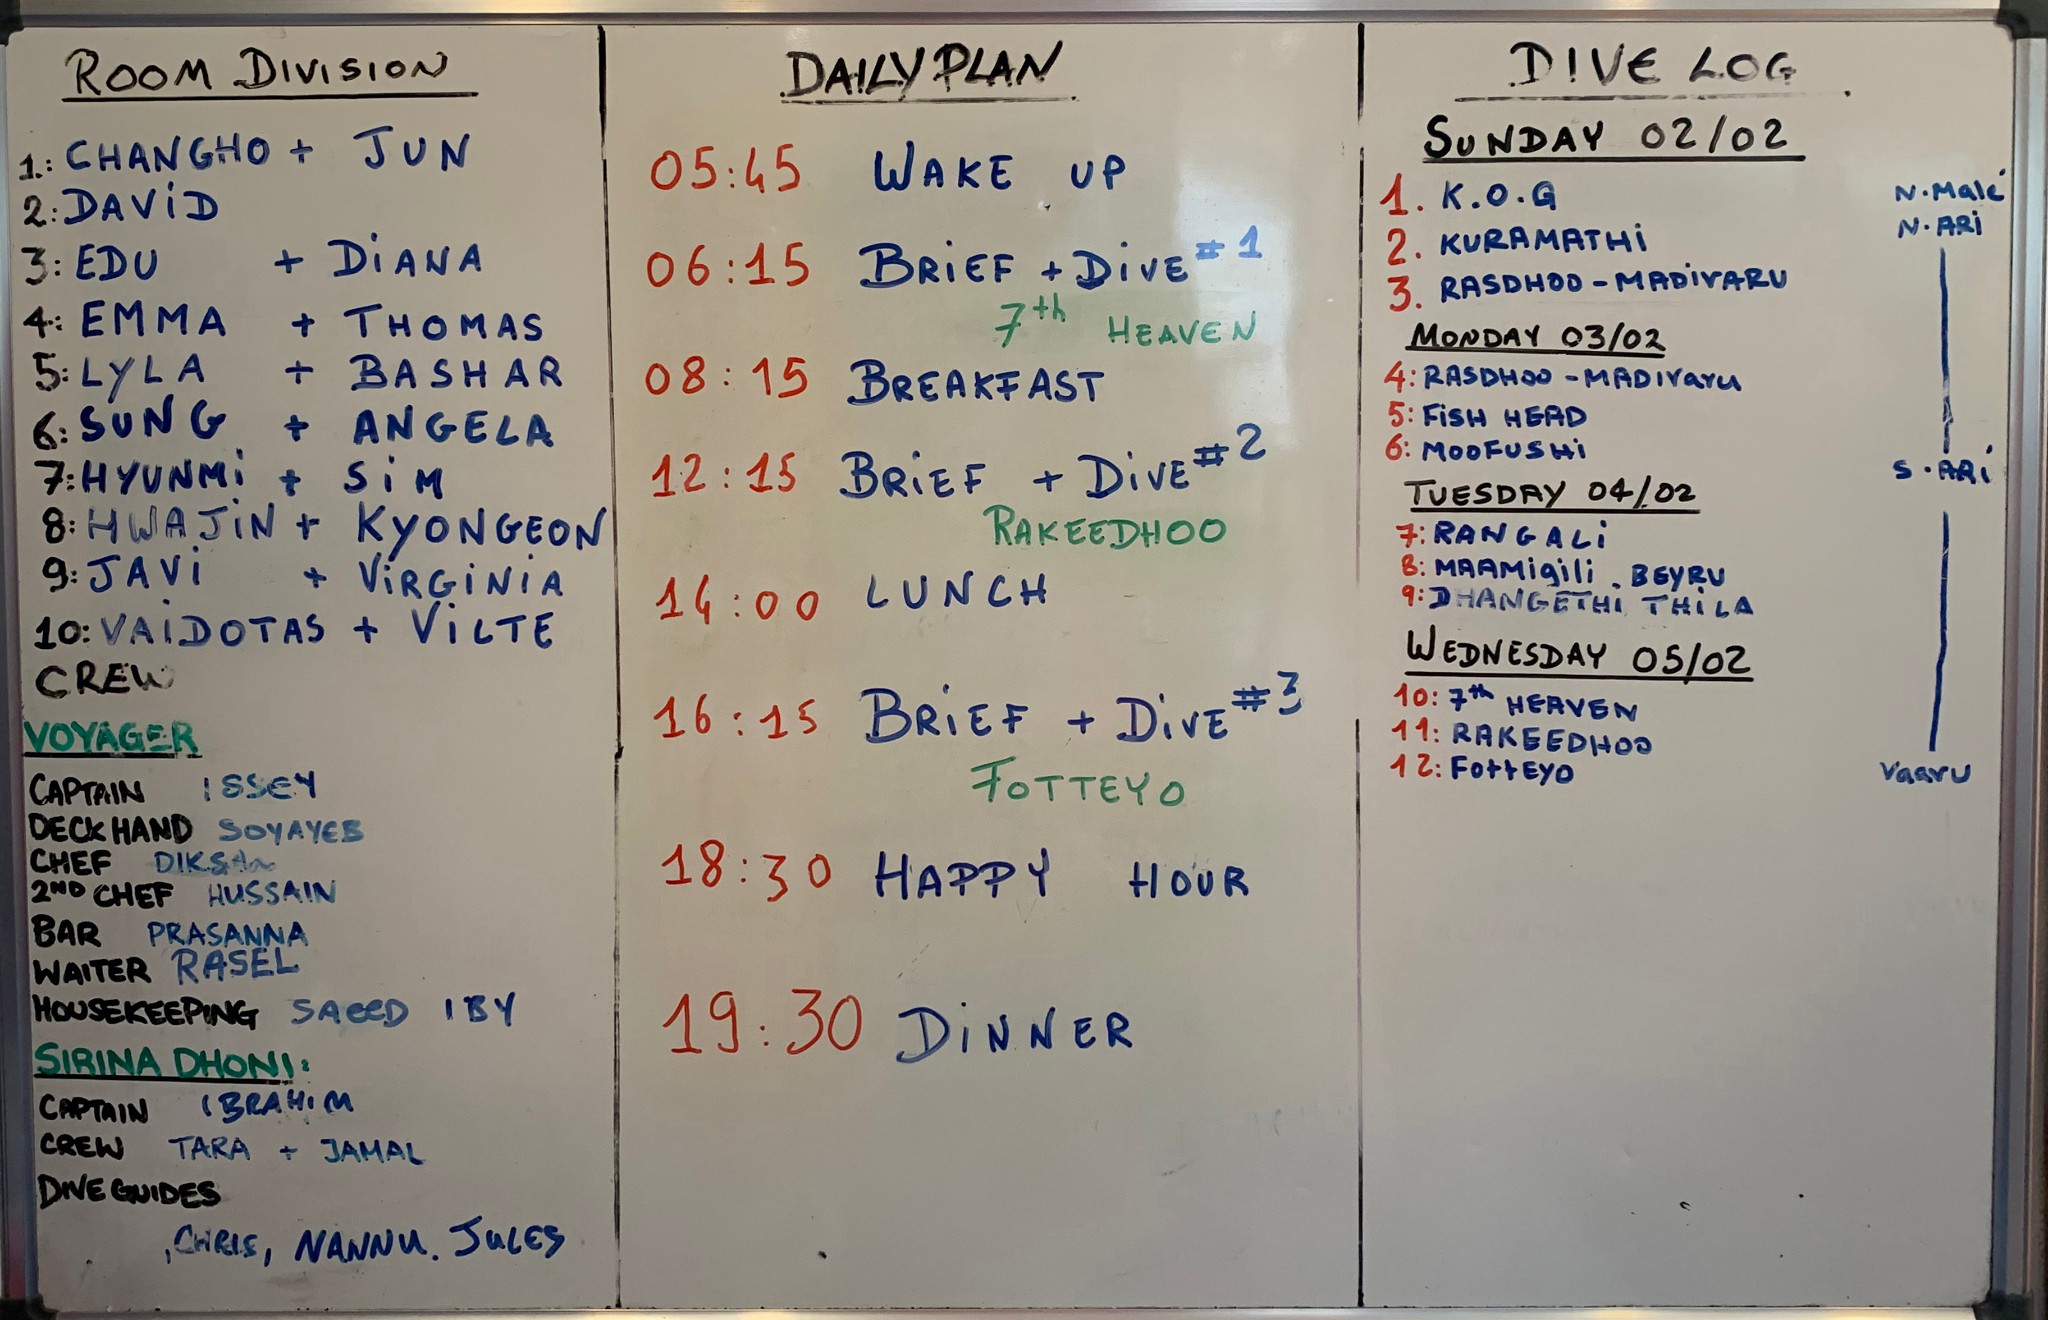 ROOM DIVISION
1: CHANGHO + JUN
2: DAViD
3: EDU + DiANA
4: EMMA + THOMAS
5: LYLA + BASHAR
6: SUNG + ANGELA
7: HYUNMi + SiM
8: HWAJiN + KYONGEON
9: JAVi + ViRGiNiA
10: VAiDOTAS + ViLTE
CREW
VOYAGER
CAPTAIN ISSEY
DECKHAND SOYAYEB
CHEF
2ND CHEF HUSSAIN
BAR PRASANNA
WAITER RASEL
HOUSEKEEPING SAEED IBY
SIRINA DHONI:
CAPTAIN IBRAHIM
CREW TARA + JAMAL
DIVE GUIDES
, CHRIS, NANNU. JULES
DAILY PLAN
05:45 WAKE UP
06:15 BRiEF + DiVE #1
7th HEAVEN
08:15 BREAKFAST
12:15 BRiEF + DiVE #2
RAKEEDHOO
14:00 LUNCH
16:15 BRiEF + DiVE #3
FOTTEYO
18:30 HAPPY HOUR
19:30 DiNNER
DIVE LOG
SUNDAY 02/02
1. K.O.G N.Malé
2. KURAMATHi N.ARi
3. RASDHOO-MADIVARU
MONDAY 03/02
4: RASDHOO-MADIVaru
5: FiSH HEAD
6: MOOFUSHi S.ARi
TUESDAY 04/02
7: RANGALi
8: MAAMigili . BEYRU
9: DHANGETHI THILA
WEDNESDAY 05/02
10: 7th HEAVEN
11: RAKEEDHOO
12: FOttEYO Vaaru